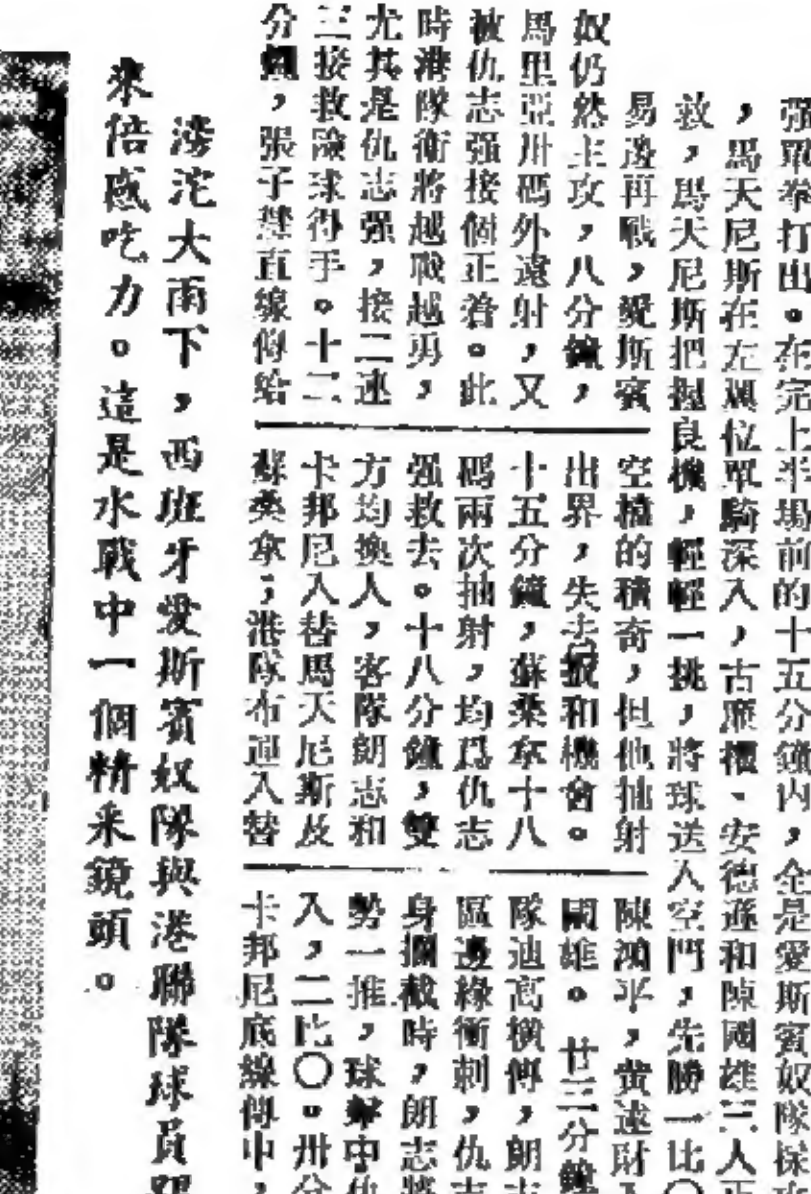 强單拳打出。在完上半場前的十五分鐘內,全是愛斯賓奴隊採
,馬天尼斯在左翼位單騎深入,古
安德遜和陳國雄三人
救,馬天尼斯把握良機,輕輕一挑,將球送入空門,先勝一比〇
易邊再戰,愛斯賓
奴仍然主攻,八分鐘,
馬里亞卅碼外遠射,又
被仇志强接個正着。此
時港隊衛將越戰越勇,
尤其是仇志强,接二連
三接救險球得手。十二
分鐘,張子慧直線傳給
空檔的積奇,但他抽射
出界,失去扳和機會。
十五分鐘,蘇桑拿十八
碼兩次抽射,均爲仇志
强救去。十八分鐘,雙
方均換人,客隊朗志和
卡邦尼入替馬天尼斯及
蘇桑拿;港隊布運入替
陳鴻平,黄達財
國雄。廿三分鐘
隊迪高橫傳,朗
區邊緣衝刺,仇志
身攔截時,朗志將
勢一推,球擊中
入,二比〇。卅分
卡邦尼底線傳中,
滂沱大雨下,西班牙愛斯賓奴隊與港聯隊球員
來倍感吃力。這是水戰中一個精采鏡頭。